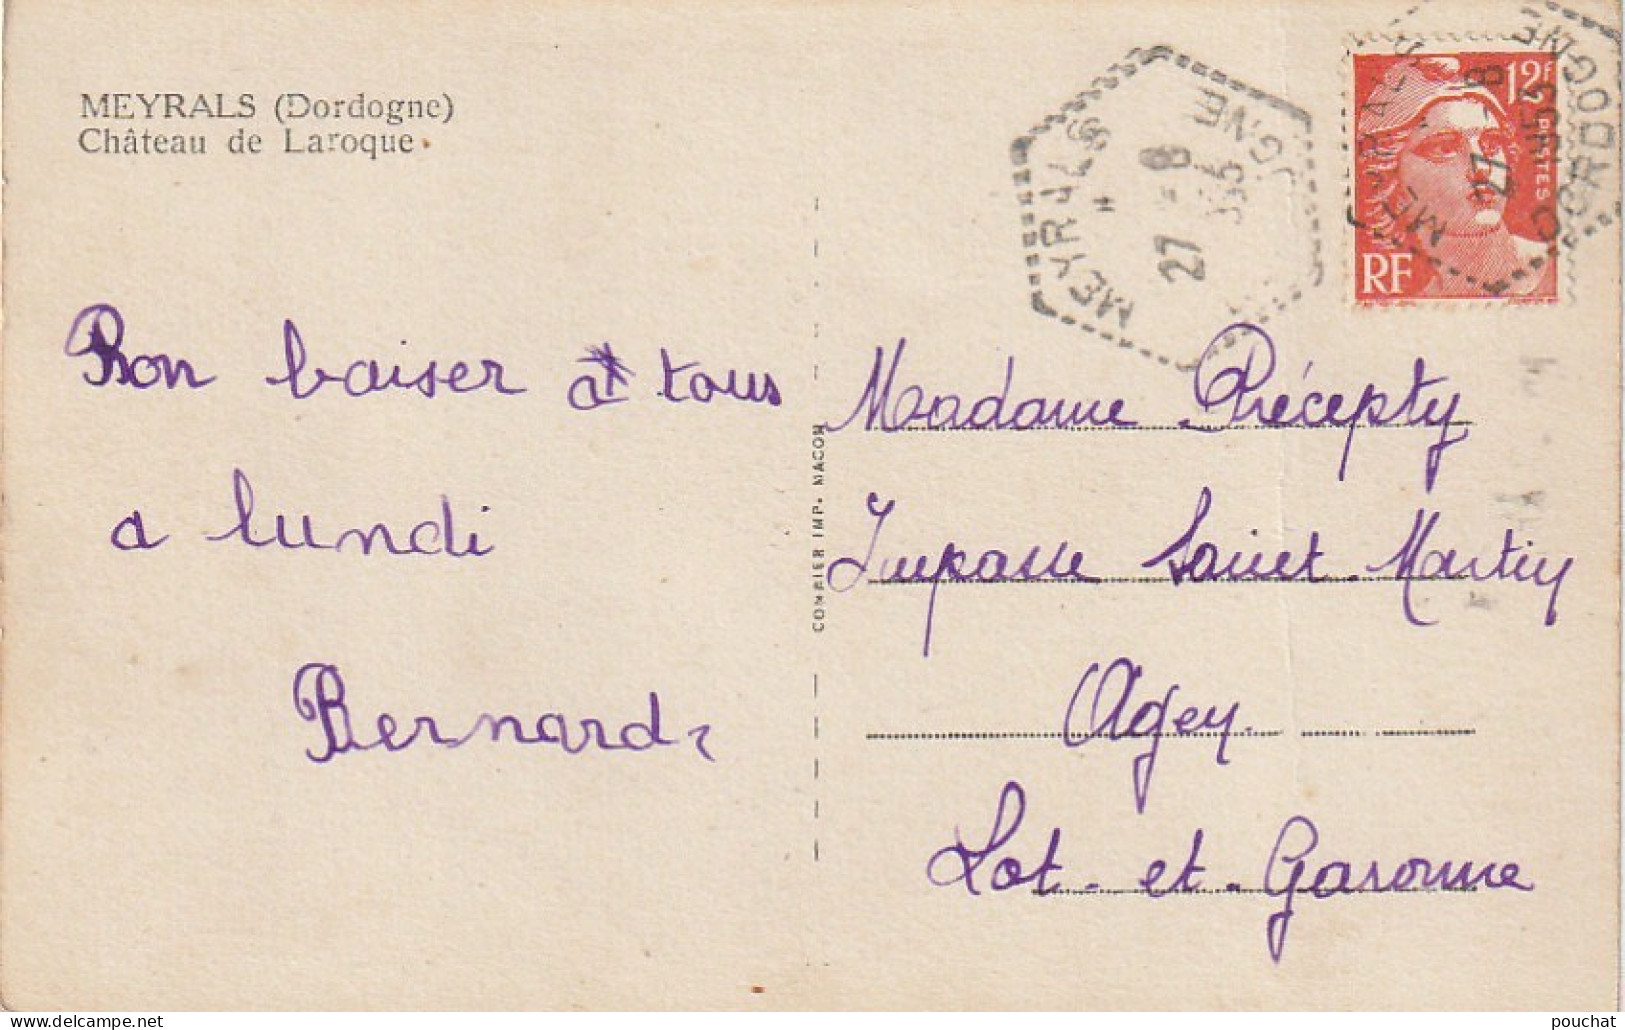 MEYRALS (Dordogne)
Château de Laroque
Bon baiser a tous
a lundi
Bernard
COMBIER IMP. MACON
MEYRALS
27 -8
DORDOGNE
12F
POSTES
RF
Madame Précepty
Impasse Saint-Martin
Agen
Lot-et-Garonne
pouchat